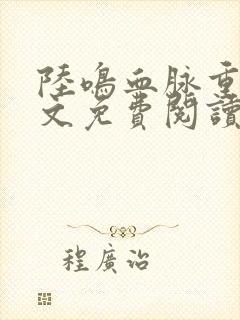 陸鳴血脉重
文免費閱讀
程廣治